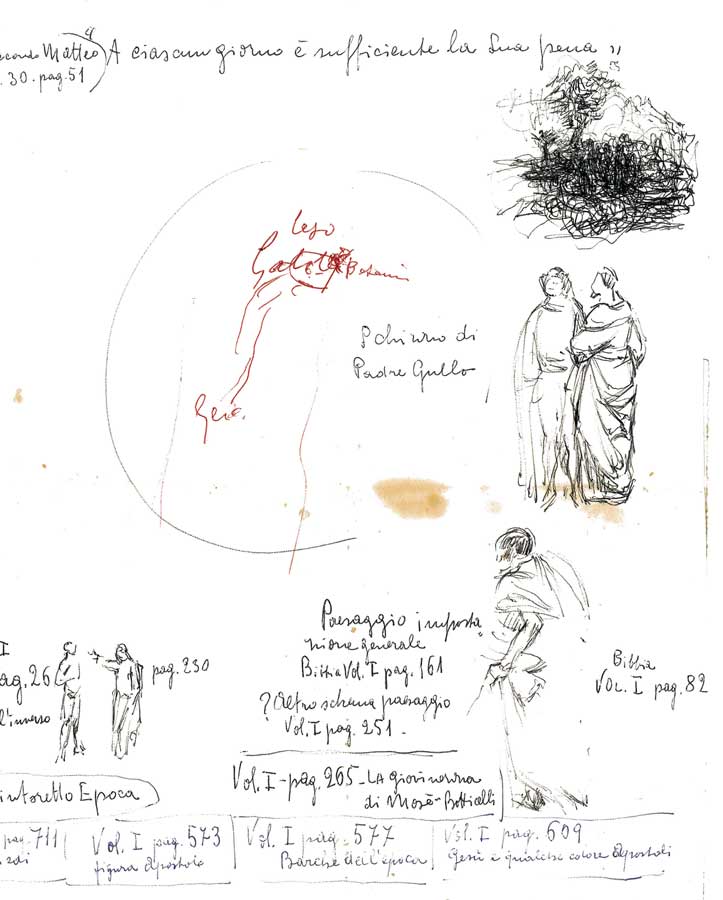 secondo Matteo 4 A ciascun giorno è sufficiente la sua pena "
. 30. pag. 51
Lago
Betania
P chiuso di
Padre Gullo
Paesaggio imposta
zione generale
Bibbia Vol. I pag. 161
? Altro schema paesaggio
Vol. I pag. 251 -
Bibbia
VOL. I pag. 82
I
ag. 26
l'inverso
pag. 230
Vol. I - pag. 265 - LA giovinezza
di Mosè - Botticelli
intoretto Epoca
pag. 711
Vol. I pag. 573
figura Apostolo
Vol. I pag. 577
Barche dell'epoca
Vol. I pag. 609
Gesù e qualche colore Apostoli